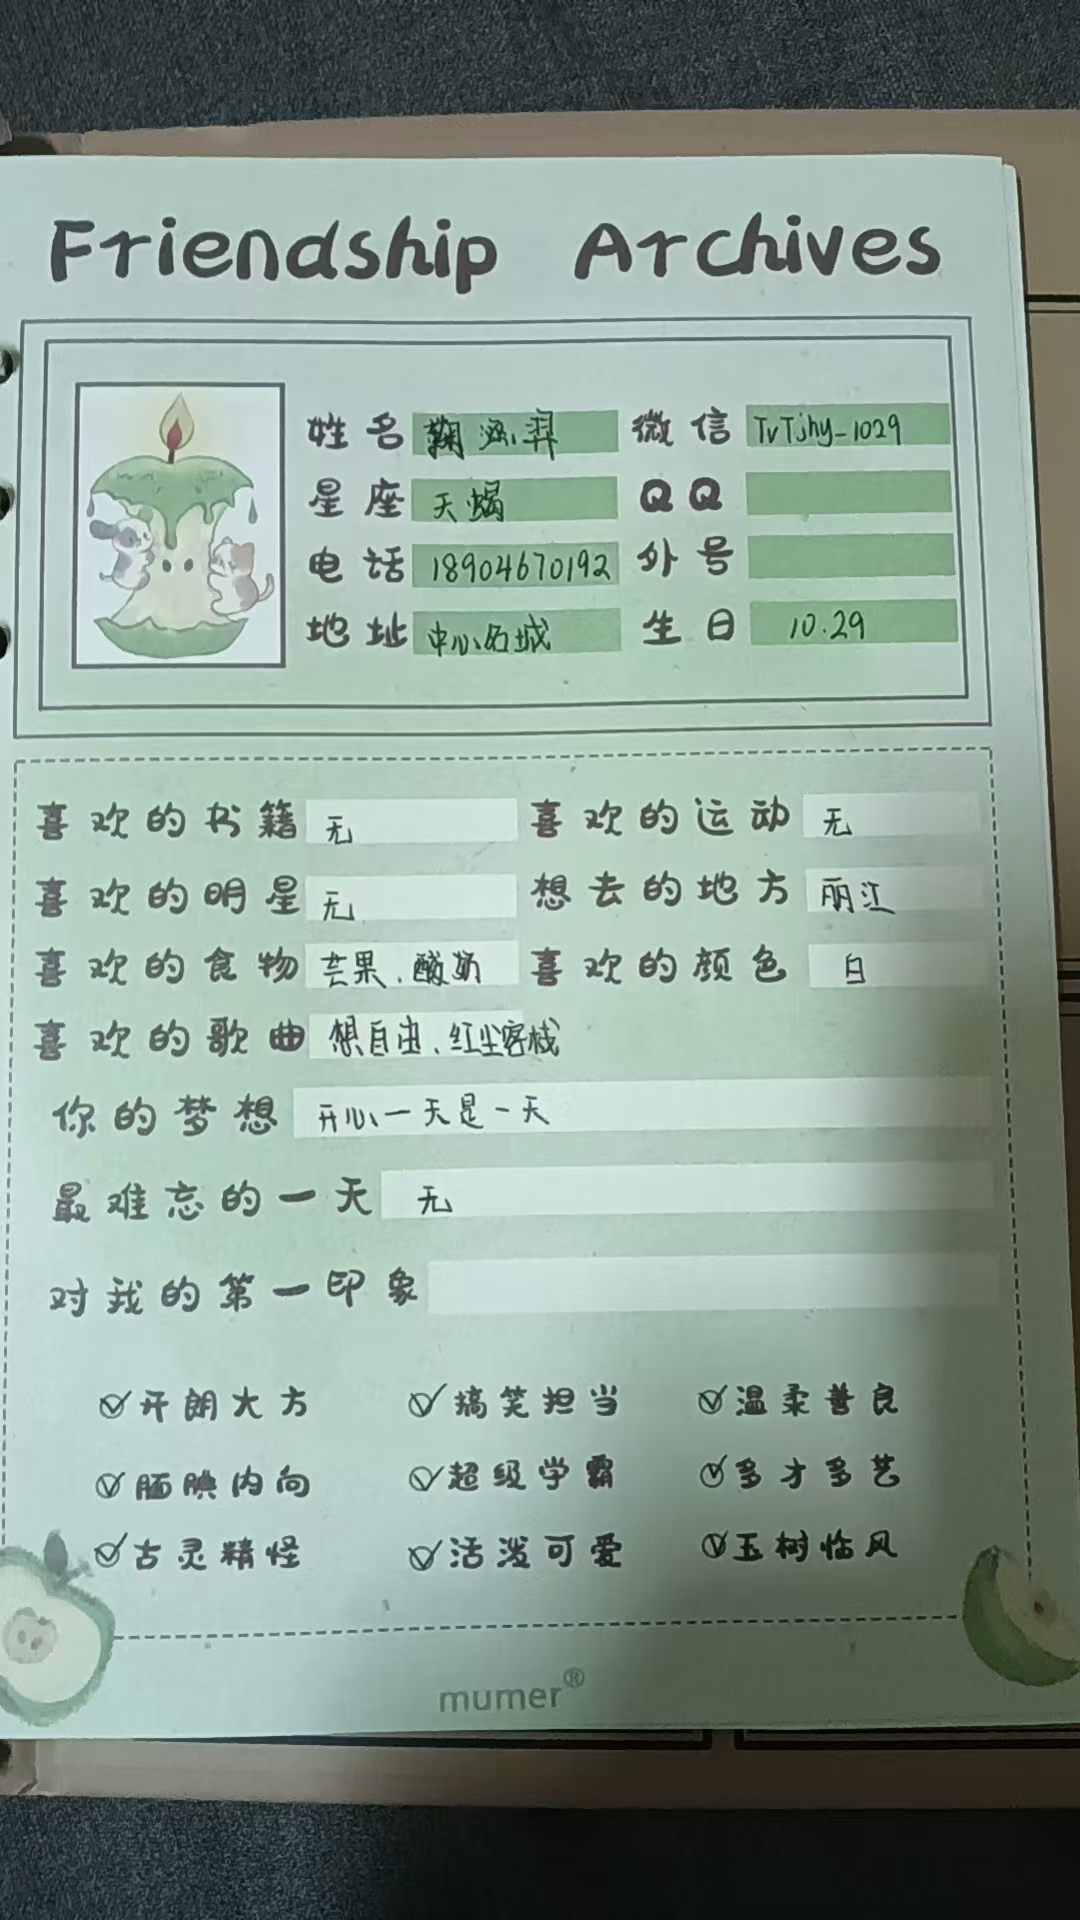 Friendship Archives
姓名 鞠涵羿 微信 TvTjhy-1029
星座 天蝎 QQ
电话 18904670192 外号
地址 中心名城 生日 10.29
喜欢的书籍 无 喜欢的运动 无
喜欢的明星 无 想去的地方 丽江
喜欢的食物 芒果、酸奶 喜欢的颜色 白
喜欢的歌曲 想自由、红尘客栈
你的梦想 开心一天是一天
最难忘的一天 无
对我的第一印象
开朗大方 搞笑担当 温柔善良
腼腆内向 超级学霸 多才多艺
古灵精怪 活泼可爱 玉树临风
mumer®